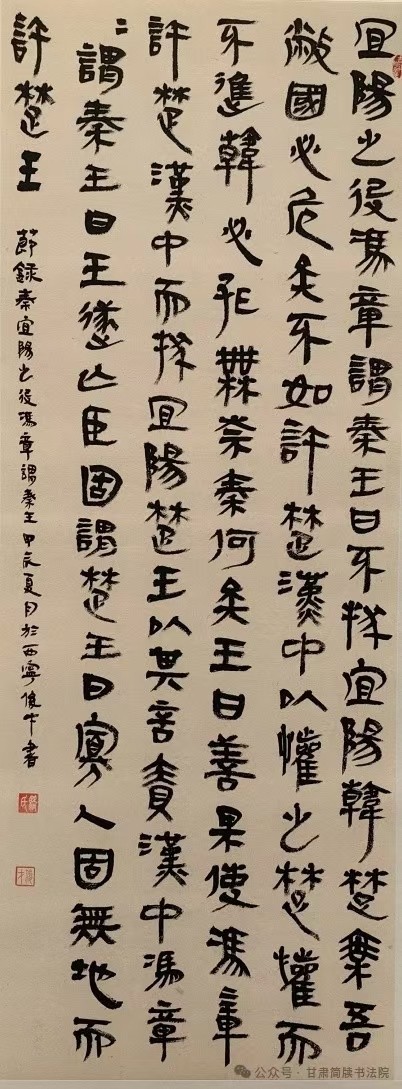 宜陽之役馮章謂秦王曰不拔宜陽韓楚乘吾
敝國必危矣不如許楚漢中以懽之楚懽而
不進韓必孤無柰秦何矣王曰善果使馮章
許楚漢中而拔宜陽楚王以其言責漢中馮章
〻謂秦王曰王遂亡臣固謂楚王曰寡人固無地而
許楚王
節錄秦宜陽之役馮章謂秦王甲辰夏月於西寧俊才書
公众号 · 甘肃简牍书法院